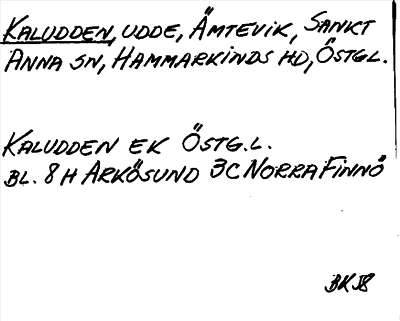 KALUDDEN, UDDE, ÄMTEVIK, SANKT
ANNA SN, HAMMARKINDS HD, ÖSTGL.
KALUDDEN EK ÖSTG.L.
BL. 8 H ARKÖSUND 3C NORRA FINNÖ
BKJ8